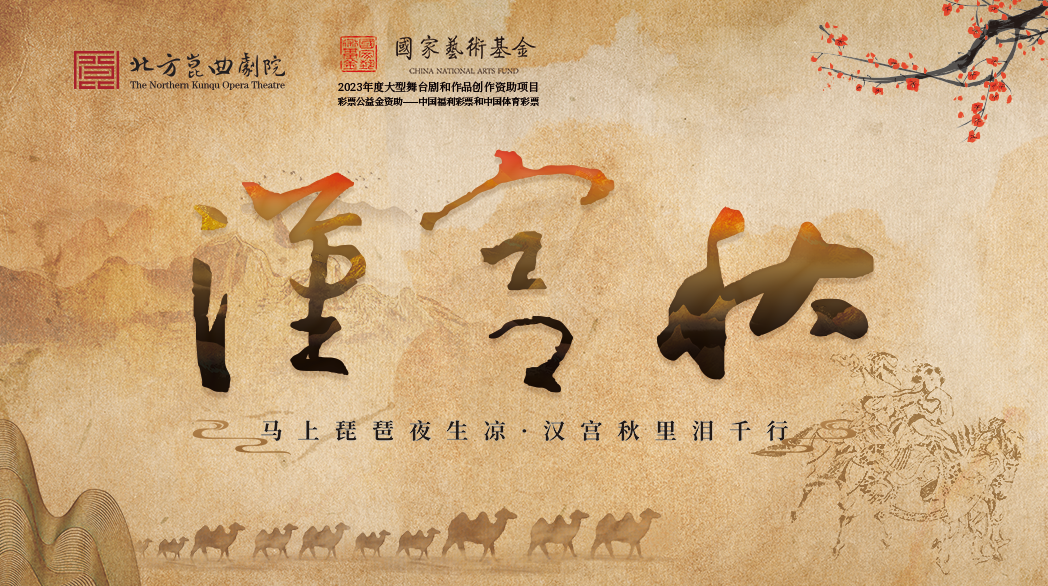 北方崑曲劇院
The Northern Kunqu Opera Theatre
國家藝術基金
CHINA NATIONAL ARTS FUND
2023年度大型舞台剧和作品创作资助项目
彩票公益金资助——中国福利彩票和中国体育彩票
漢宫秋
马上琵琶夜生凉·汉宫秋里泪千行